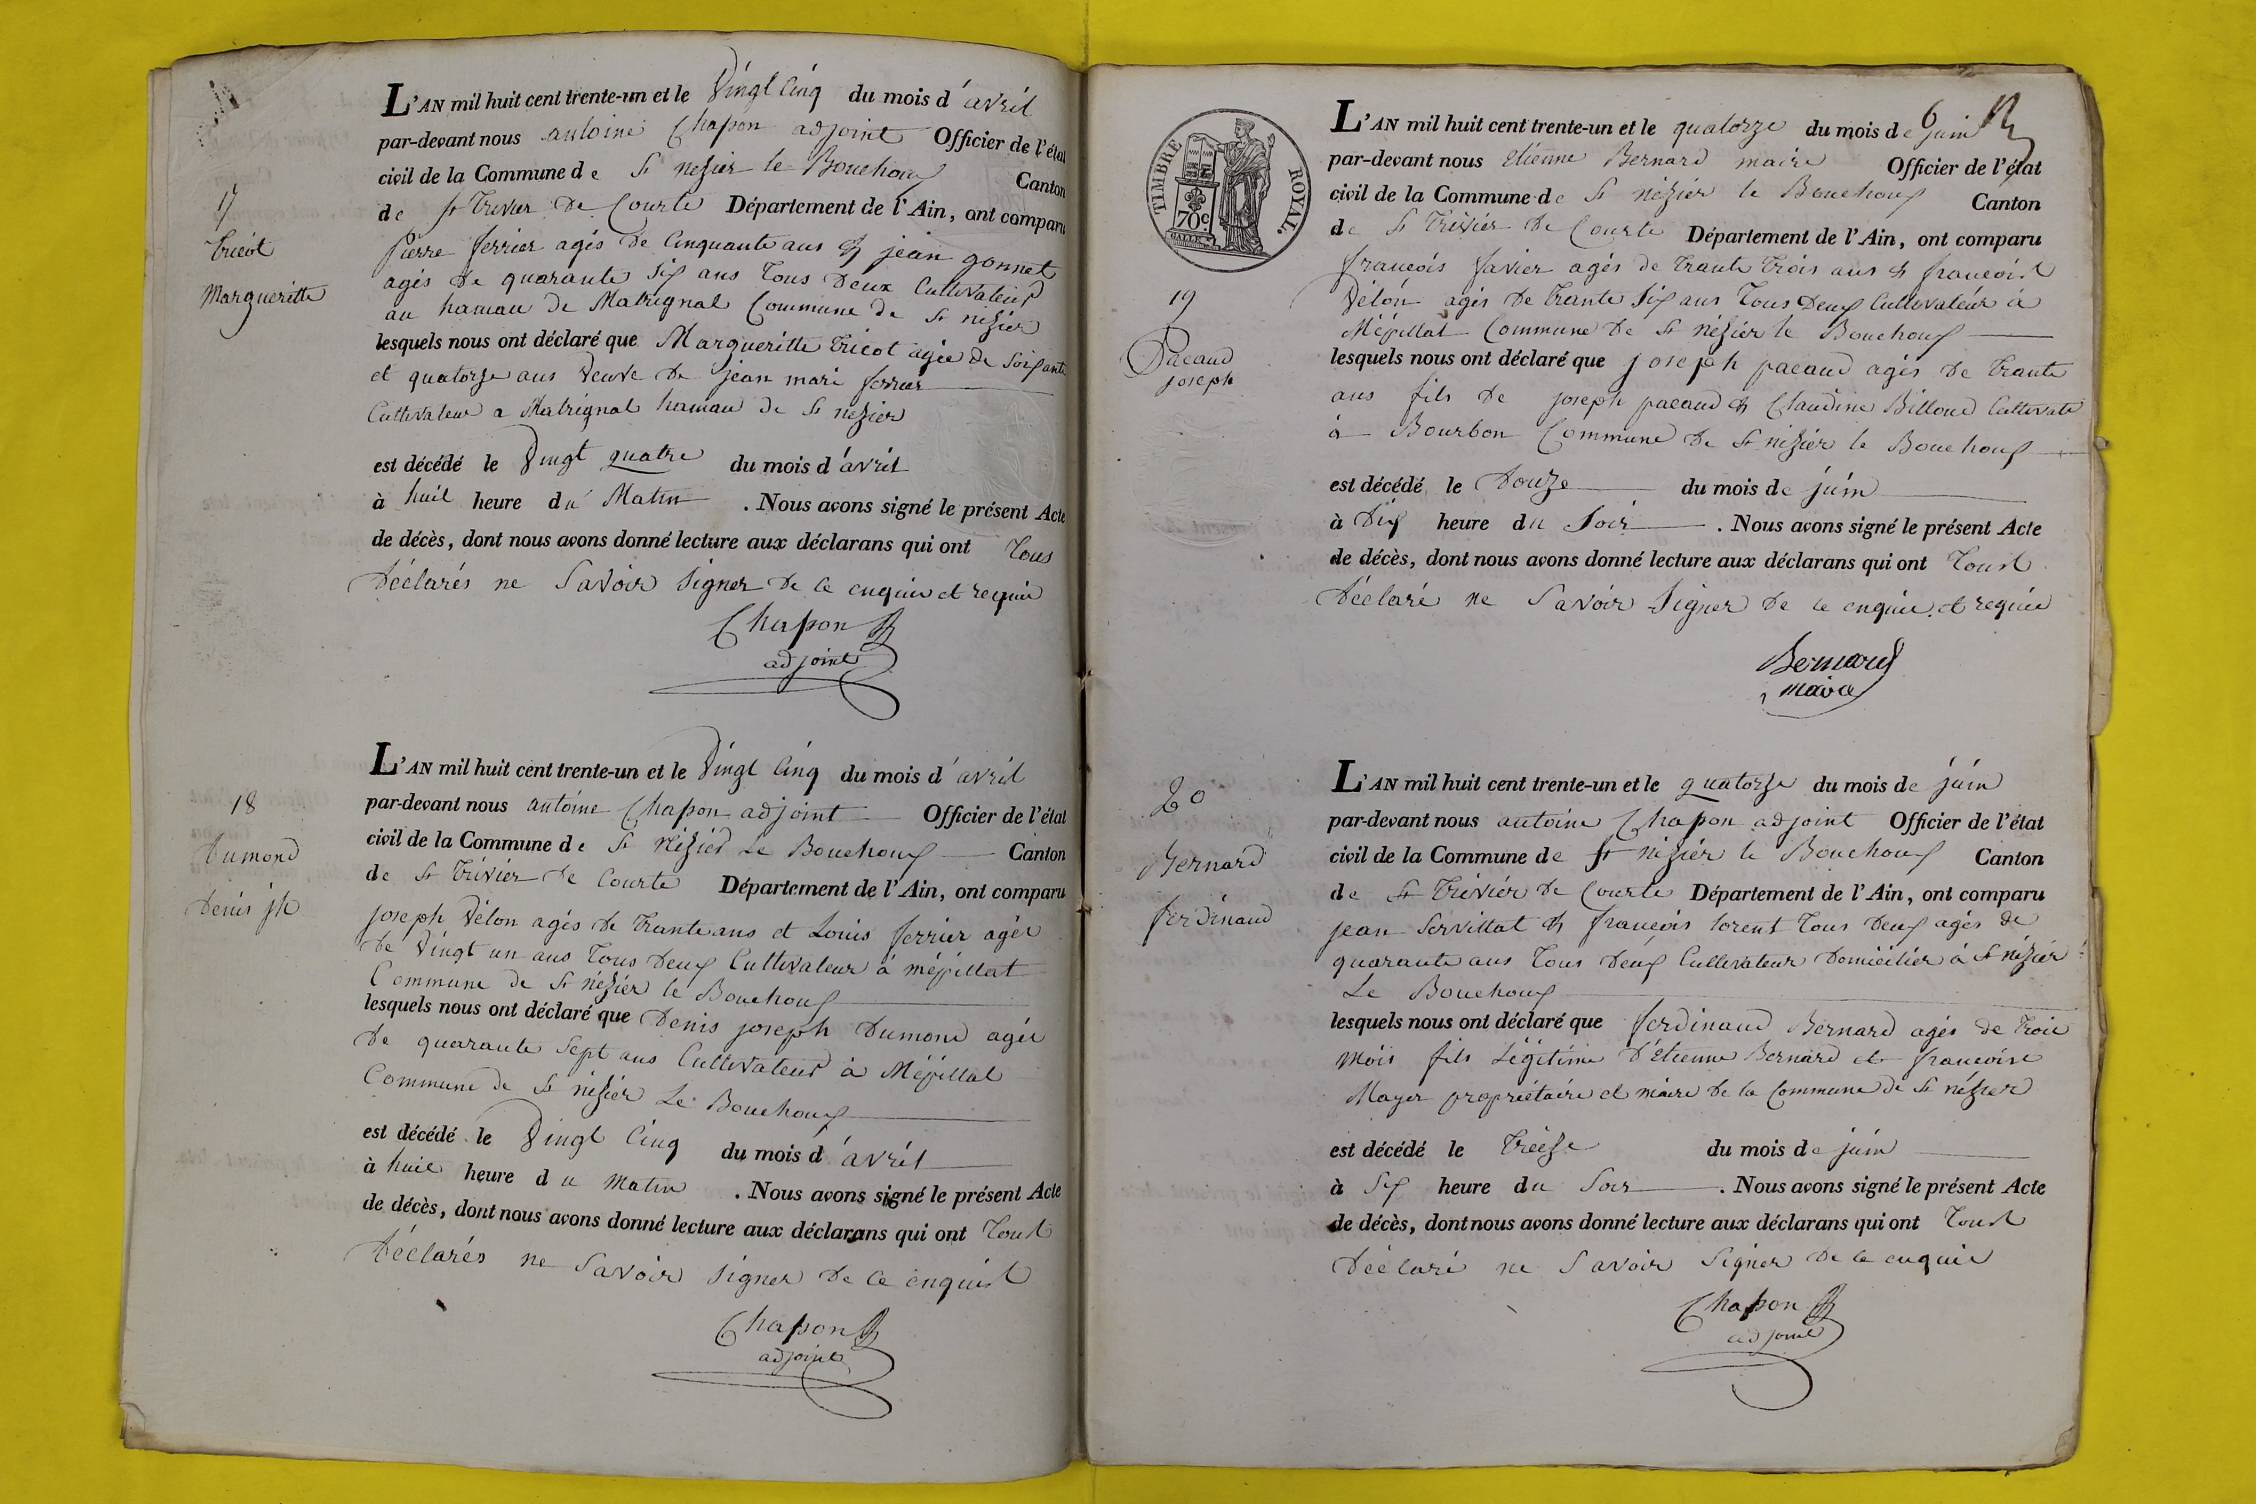 17
tricot
Margueritte
L'AN mil huit cent trente-un et le Vingt Cinq du mois d'avril
par-devant nous antoine Chapon adjoint Officier de l'état
civil de la Commune de St nesier le Bouchoux Canton
de St Trivier De Courte Département de l'Ain, ont comparu
Pierre ferrier agés de Cinquante ans & jean gonnet
agés De quarante Six ans Tous Deux Cultivateurs
au hamau de Matrignat Commune de St nesier
lesquels nous ont déclaré que Margueritte tricot agée de Soixante
et quatorze ans Veuve De jean marie ferrier
Cultivateur a Matrignat hamau de St nesier
est décédé le Vingt quatre du mois d'avril
à huit heure du Matin . Nous avons signé le présent Acte
de décès, dont nous avons donné lecture aux déclarans qui ont Tous
Déclarés ne Savoir Signer De ce enquis et requis
Chapon
adjoint
18
Dumond
Denis jh
L'AN mil huit cent trente-un et le Vingt Cinq du mois d'avril
par-devant nous antoine Chapon adjoint Officier de l'état
civil de la Commune de St nésier Le Bouchoux Canton
de St Trivier De Courte Département de l'Ain, ont comparu
joseph Vélon agés de trante ans et Louis ferrier agés
De Vingt un ans Tous Deux Cultivateur à mépillat
Commune de St nésier le Bouchoux
lesquels nous ont déclaré que Denis joseph Dumond agés
De quarante Sept ans Cultivateur à Mépillat
Commune de St nésier Le Bouchoux
est décédé le Vingt Cinq du mois d'avril
à huit heure du matin . Nous avons signé le présent Acte
de décès, dont nous avons donné lecture aux déclarans qui ont Tout
Déclarés ne Savoir Signer De Ce enquist
Chapon
adjoint
6
TIMBRE ROYAL.
70c.
19
Pacaud
joseph
L'AN mil huit cent trente-un et le quatorze du mois de juin
par-devant nous etienne Bernard maire Officier de l'état
civil de la Commune de St nésier le Bouchoux Canton
de St Trivier De Courte Département de l'Ain, ont comparu
francois favier agés de trante trois ans & francoist
Vélon agés De trante Six ans Tous Deux Cultivateur à
Mépillat Commune De St nésier le Bouchoux
lesquels nous ont déclaré que joseph pacaud agés De trante
ans fils de joseph pacaud & Claudine Billoud Cultivate
à Bourbon Commune De St nésier le Bouchoux
est décédé le Douze du mois de juin
à Dix heure du Soir . Nous avons signé le présent Acte
de décès, dont nous avons donné lecture aux déclarans qui ont Tout
Déclaré ne Savoir Signer De ce enquie et requie
Bernard
maire
20
Bernard
ferdinand
L'AN mil huit cent trente-un et le quatorze du mois de juin
par-devant nous antoine Chapon adjoint Officier de l'état
civil de la Commune de St nésier le Bouchoux Canton
de St Trivier De Courte Département de l'Ain, ont comparu
jean Servillat & francois lorent Tous Deux agés de
quarante ans Tous Deux Cultivateur Domicilier à St nésier
Le Bouchoux
lesquels nous ont déclaré que ferdinand Bernard agés de trois
mois fils Légitime D'Etienne Bernard et francoise
Mayer propriétaire et maire De la Commune de St nésier
est décédé le treize du mois de juin
à Six heure du Soir . Nous avons signé le présent Acte
de décès, dont nous avons donné lecture aux déclarans qui ont Tout
Déclaré ne Savoir Signer De ce enquis
Chapon
adjoint